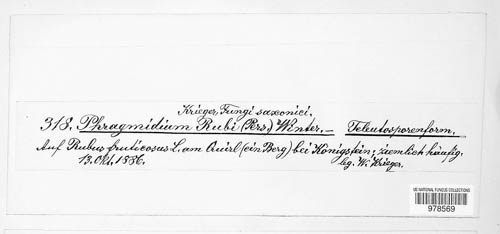 Krieger, Fungi saxonici,
318. Phragmidium Rubi (Pers.) Winter. — Teleutosporenform.
Auf Rubus fruticosus L. am Quirl (ein Berg) bei Königstein; ziemlich häufig.
13. Okt. 1886. leg. W. Krieger.
US NATIONAL FUNGUS COLLECTIONS
978569